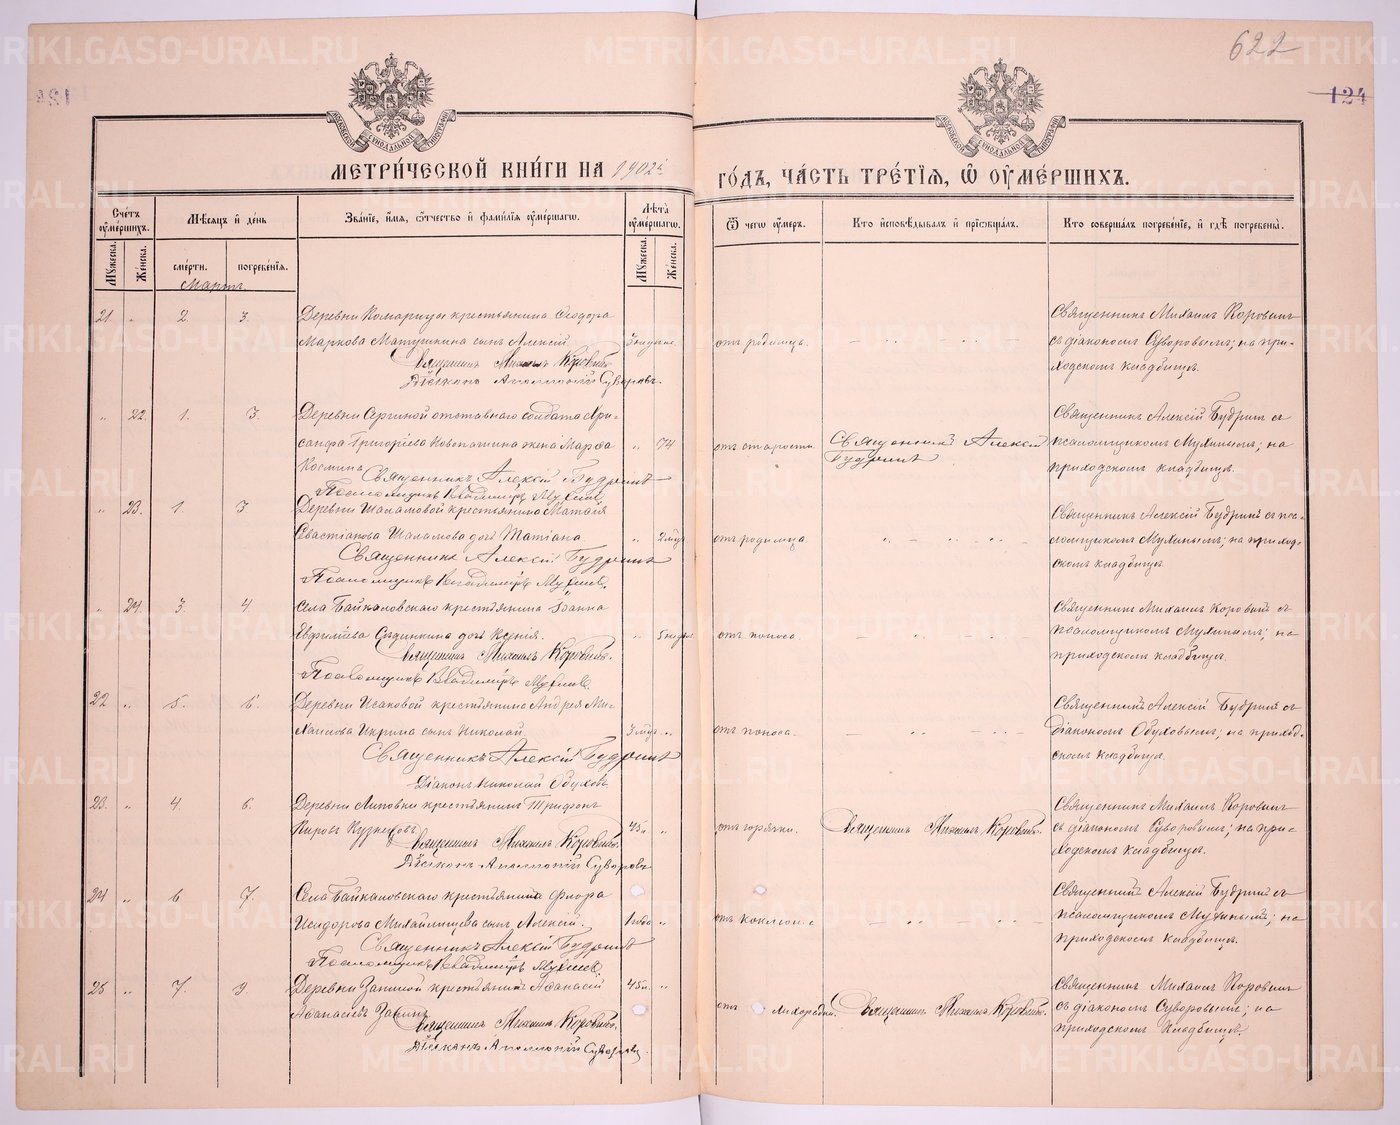 622
124
МЕТРИ́ЧЕСКОЙ КНИ́ГИ НА 1902й
ГО́ДЪ, ЧА́СТЬ ТРЕ́ТІЯ, Ѿ ОУМЕ́РШИХЪ.
Счетъ оумершихъ.
Мѣсяцъ и день
Званіе, имя, отчество и фамилія оумершагω.
Лѣта оумершагω.
Мужеска.
Женска.
смерти.
погребенія.
Мужеска.
Женска.
Ѿ чегω оумеръ.
Кто исповѣдывалъ и пріобщалъ.
Кто совершалъ погребеніе, и гдѣ погребены.
Мартъ.
21. „ 2. 3.
Деревни Комарицы крестьянина Ѳеодора
Маркова Матушкина сынъ Алексій 3 недѣли.
Священникъ Михаилъ Коровинъ
Діаконъ Аполлоній Суворовъ.
отъ родимца.
Священникъ Михаилъ Коровинъ
съ діакономъ Суворовымъ; на при-
ходскомъ кладбищѣ.
„ 22. 1. 3.
Деревни Сергиной отставнаго солдата Хри-
санфа Григоріева Новопашина жена Марѳа „ 74
Космина
Священникъ Алексій Будринъ
Псаломщикъ Владиміръ Мухинъ
отъ старости.
Священникъ Алексій
Будринъ
Священникъ Алексій Будринъ съ
псаломщикомъ Мухинымъ; на
приходскомъ кладбищѣ.
„ 23. 1. 3
Деревни Шаламовой крестьянина Матѳія
Севастіанова Шаламова дочь Татіана „ 2 мѣс.
Священникъ Алексій Будринъ
Псаломщикъ Владиміръ Мухинъ.
отъ родимца
Священникъ Алексій Будринъ съ пса-
ломщикомъ Мухинымъ; на приход-
скомъ кладбищѣ.
„ 24. 3. 4.
Села Байкаловскаго крестьянина Іоанна
Евфиміева дочь Ксенія. „ 5 недѣл.
Священникъ Михаилъ Коровинъ.
Псаломщикъ Владиміръ Мухинъ.
отъ поноса
Священникъ Михаилъ Коровинъ съ
псаломщикомъ Мухинымъ; на
приходскомъ кладбищѣ.
22 „ 5. 6.
Деревни Исаковой крестьянина Андрея Ми-
хаилова сынъ Николай. 3 мѣс. „
Священникъ Алексій Будринъ
Діаконъ Николай Обуховъ
отъ поноса.
Священникъ Алексій Будринъ съ
діакономъ Обуховымъ; на приход-
скомъ кладбищѣ.
23. „ 4. 6.
Деревни Липовки крестьянинъ Трифонъ
Кировъ Кузнецовъ 45 л. „
Священникъ Михаилъ Коровинъ.
Діаконъ Аполлоній Суворовъ
отъ горячки.
Священникъ Михаилъ Коровинъ.
Священникъ Михаилъ Коровинъ
съ діакономъ Суворовымъ; на при-
ходскомъ кладбищѣ.
24 „ 6 7.
Села Байкаловскаго крестьянина Флора
Исидорова Михайлищева сынъ Алексій. 1 годъ „
Священникъ Алексій Будринъ
Псаломщикъ Владиміръ Мухинъ.
отъ коклюша
Священникъ Алексій Будринъ съ
псаломщикомъ Мухинымъ; на
приходскомъ кладбищѣ.
25 „ 7. 9.
Деревни Заниной крестьянинъ Аѳанасій 45 л. „
Аѳанасіевъ Занинъ
Священникъ Михаилъ Коровинъ.
Діаконъ Аполлоній Суворовъ.
отъ лихорадки.
Священникъ Михаилъ Коровинъ.
Священникъ Михаилъ Коровинъ
съ діакономъ Суворовымъ; на
приходскомъ кладбищѣ.
METRIKI.GASO-URAL.RU